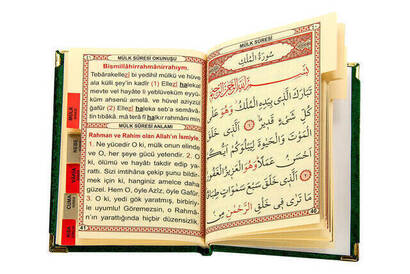 MÜLK SÛRESİ OKUNUŞU
Bismillâhirrahmânirrahıym.
Tebârakellezî bi yedihil mülkü ve hüve
alâ külli şey'in kadîr (1) Ellezî halekal
mevte vel hayâte li yeblüveküm eyyü-
küm ahsenü amelâ. ve hüvel azîyzül
gafûr (2) Ellezî haleka seb'a semâvâ-
tin tıbâkâ. mâ terâ fî halkır rahmâni min
MÜLK SÛRESİ ANLAMI
Rahman ve Rahim olan Allah'ın ismiyle.
1. Ne yücedir O ki, mülk onun elinde
ve O, her şeye gücü yetendir. 2. O
ki, ölümü ve hayatı takdir edip yarat-
tı. Sizi imtihâna çekip şunu bildir-
mek için ki, hanginiz amelce daha
güzel. Hem O, öyle Azîz, öyle Gafûr.
3. O ki, yedi gök yaratmış, birbiriy-
le uyumlu! Göremezsin, o Rahmâ-
n'ın yarattığında hiçbir düzensizlik.
41
MÜLK
YASİN
CUMA
MÜLK SÛRESİ
سُورَةُ الْمُلْكِ
بِسْمِ اللهِ الرَّحْمٰنِ الرَّحِيمِ
تَبَارَكَ الَّذِي بِيَدِهِ الْمُلْكُ وَهُوَ عَلٰى
كُلِّ شَيْءٍ قَدِيرٌ ١ اَلَّذِي خَلَقَ
الْمَوْتَ وَالْحَيٰوةَ لِيَبْلُوَكُمْ اَيُّكُمْ
اَحْسَنُ عَمَلًا وَهُوَ الْعَزِيزُ الْغَفُورُ
٢ اَلَّذِي خَلَقَ سَبْعَ سَمٰوَاتٍ طِبَاقًا
مَا تَرٰى فِي خَلْقِ الرَّحْمٰنِ مِنْ
40